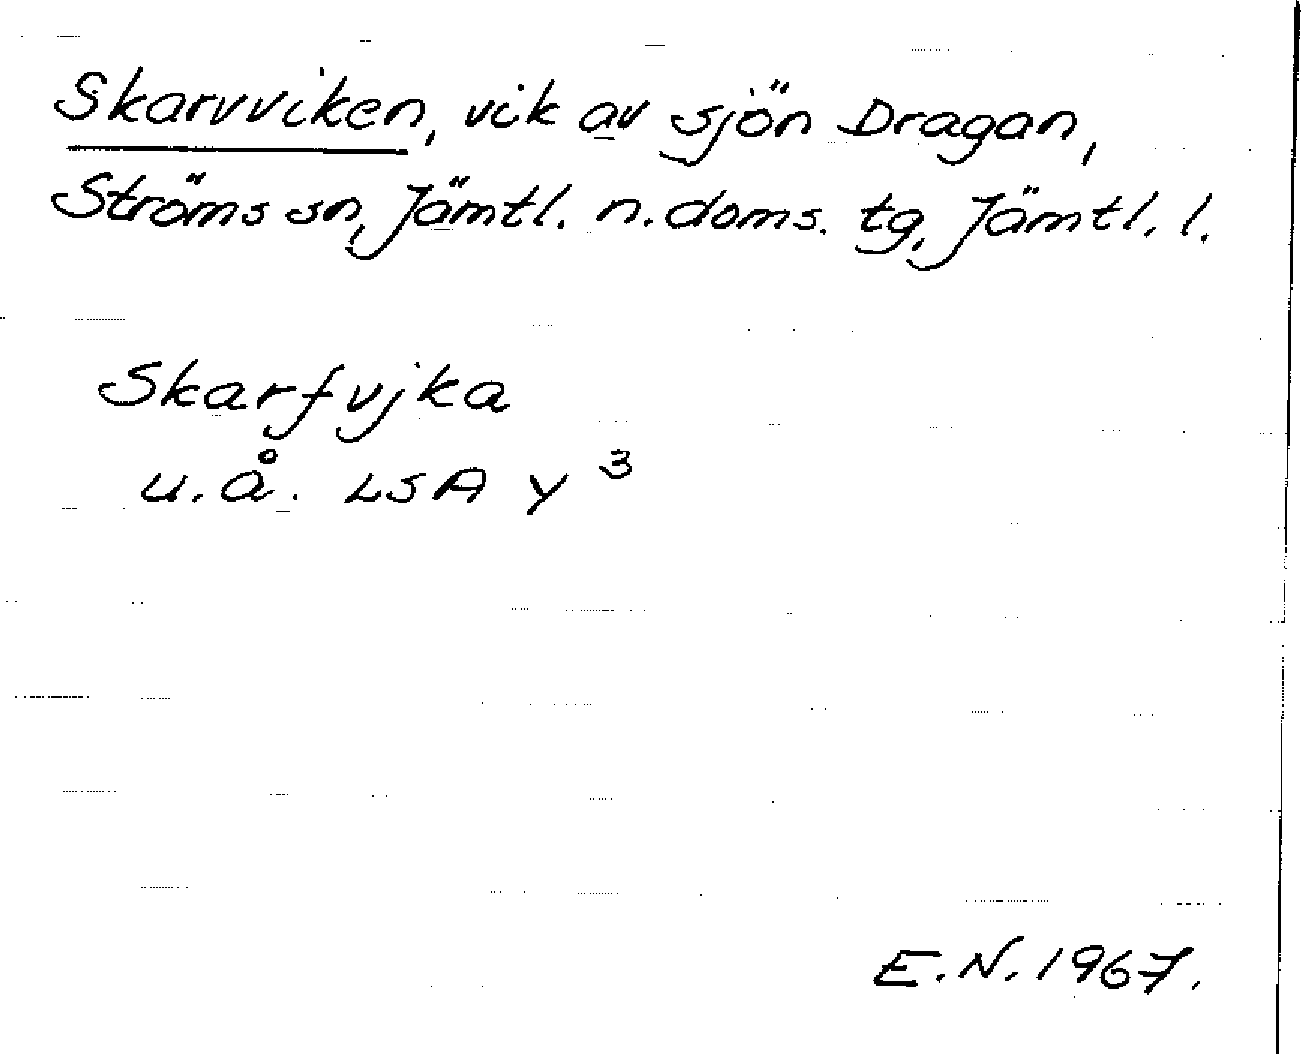 Skarvviken, vik av sjön Dragan,
Ströms sn, Jämtl. n. doms. tg, Jämtl. l.
Skarfvjka
u.å. LSA Y 3
E.N. 1967.